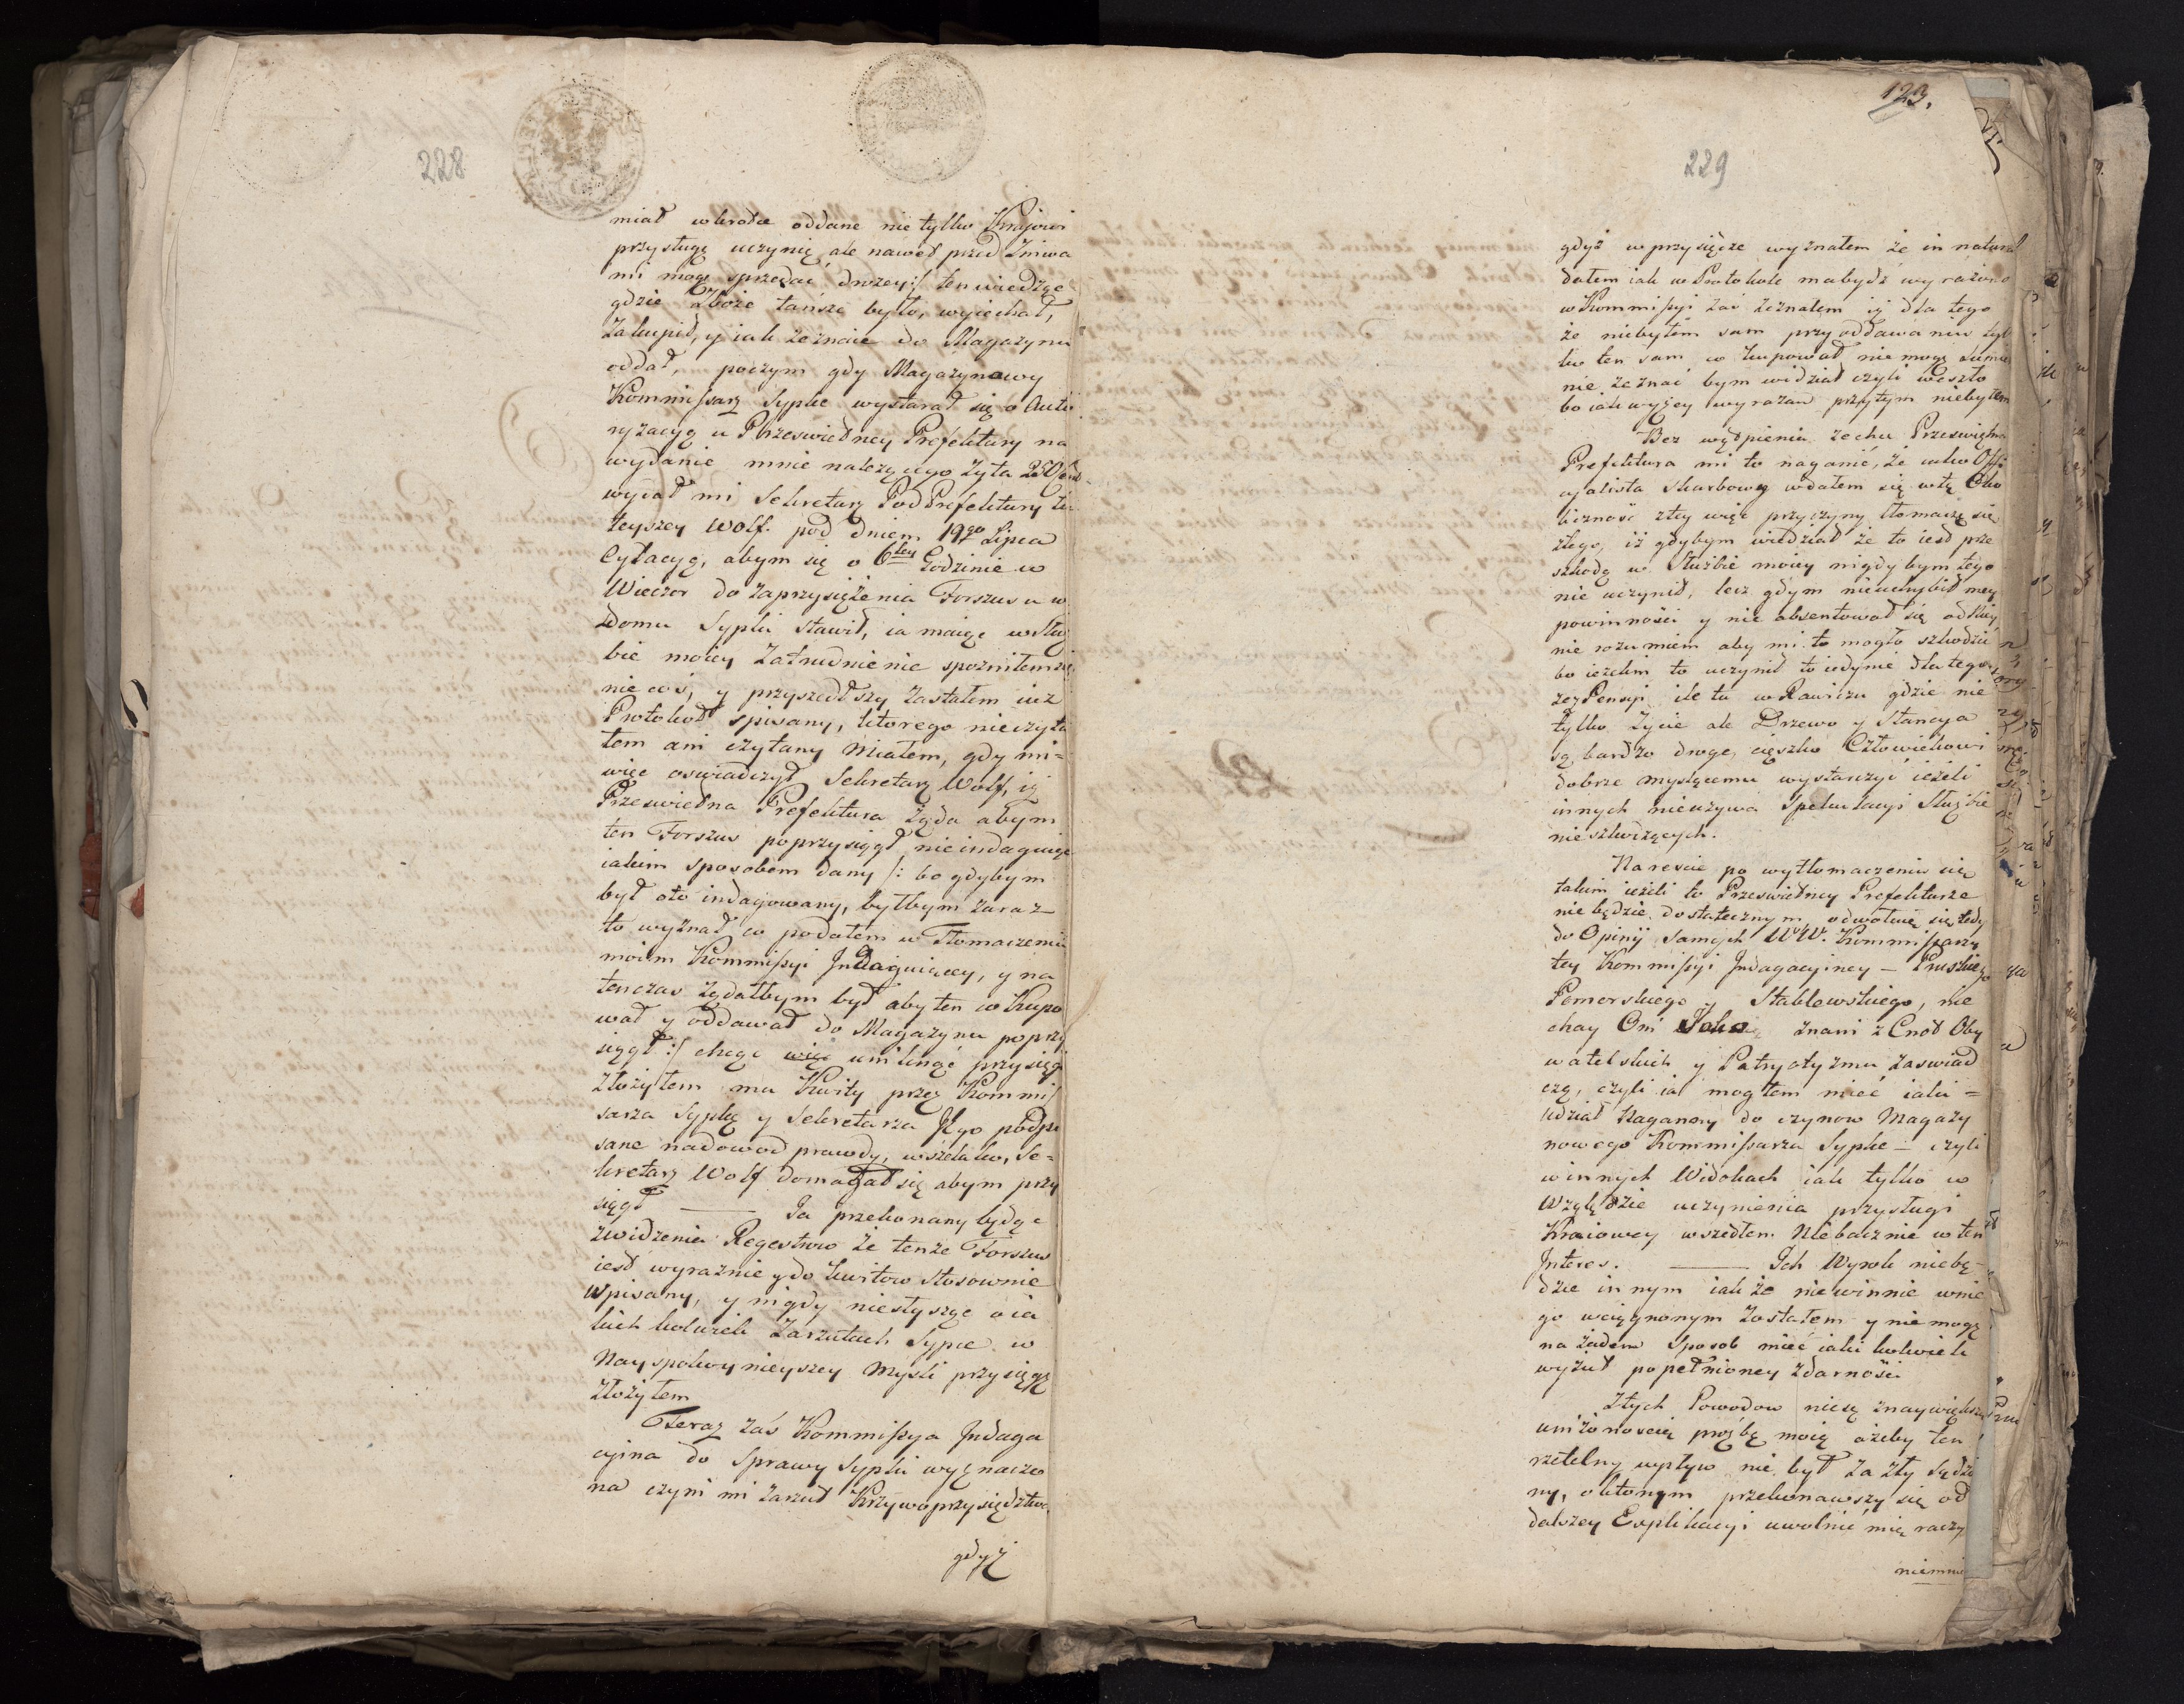 228
miał wkrotce oddane nie tylko Krajowi
przysługę uczynię ale nawet przed Zniwa
mi mogę sprzedać drozey :/ ten wiedzge
gdzie Zboże tańsze było, wyiechał,
Zakupił, y iak zeznaie do Magazynu
oddał, poczym gdy Magazynowy
Kommissarz Sypke wystarał się o Auto
ryzacyą u Prześwietney Prefektury na
wydanie mnie należącego Zyta 250
wydał mi Sekretarz PodPrefektury tu
teyszey Wolf. pod dniem 19go Lipca
Cytacyą, abym się o 6tey Godzinie w
Wieczor do Zaprzysiężenia Forszusu w
domu Sypki stawił, ia maiąc w Słuz
bie moiey Zatrudnienie spoznitem się
nie coś, y przyszedłszy Zastałem iuz
Protokoł spisany, ktorego nieczyta
łem ani czytany Miałem, gdy mi=
więc oswiadczył Sekretarz Wolf, iż
Przeswietna Prefektura Żąda abym
ten Forszus poprzysiągł nieindaguiąc
iakim sposobem dany /: bo gdybym
był oto indagowany, byłbym zaraz
to wyznał co podałem w Tłomaczeniu
moim Kommissyi Indaguiącey, y na
tenczas żądałbym był aby ten co Kupo
wał y oddawał do Magazynu poprzy
siągł :/ chcąc więc uniknąć przysięgi
złożyłem mu Kwity przez Kommis
sarza Sypkę y Sekretarza JEgo podpi
sane nadowod prawdy, wszelako, Se=
kretarz Wolf domagał się abym przy
siągł — Ja przekonany będąc
zwidzenia Regestrow że tenże Forszus
iest wyraznie y do kwitow stosownie
wpisany, y nigdy niesłysząc o ia
kich kolwiek Zarzutach Sypce w
Nayspokoynieyszey Mysli przysięgę
złożyłem
Teraz zaś Kommissya Indaga
cyina do Sprawy Sypki wyznaczo
na czyni mi zarzut Krzywoprzysięztwa,
gdyż
123.
229
gdyż w przysiędze wyznałem że in natura
dałem iak w Protokole mabydź wyrażono
w Kommissyi zaś zeznałem iż dla tego
że niebyłem sam przy oddawaniu tyl
ko ten sam co kupował nie mogę sumie
nie zeznać bym widział czyli weszło
bo iak wyżey wyrazam przytym niebyłem
Bez wątpienia zechce Przeswietna
Prefektura mi to naganić, że iako Offi
cyalista Skarbowy wdałem się w tę Oko
liczność ztey więc przyczyny tłomaczę się
ztego, iż gdybym wiedział że to iest prze
szkodą w Służbie moiey nigdy bym tego
nie uczynił, lecz gdym nieuchybił mey
powinności y nie absentował się od Niey
nie rozumiem aby mi to mogło szkodzić
bo ieżelim to uczynił to iedynie dla tego
zez Pensyi ile tu w Rawiczu gdzie nie
tylko Życie ale Drzewo y Stancya
są bardzo drogie, cięszko Człowiekowi
dobrze myslącemu wystarczyć ieżeli
innych nieużywa Spekulacyi Służbie
nieszkodzących.
Nareście po wytłomaczeniu się
takim ieżeli to Przeswietney Prefekturze
nie będzie dostatecznym, odwołuię się tedy
do Opinij samych WW. Kommissarzy
tey Kommissyi Indagacyiney — Pruskiego
Pomorskiego y Stablewskiego, nie
chay Oni Jako znani z Cnot Oby
watelskich y Patryotyzmu zaswiad
czą, czyli ia mogłem mieć iaki=
udział Naganny do czynow Magazy
nowego Kommissarza Sypke — czyli
w innych Widokach iak tylko w
Względzie uczynienia przysługi
Kraiowey wszedłem Niebacznie w ten
Interes. — Ich Wyrok niebę=
dzie innym iak że niewinnie wnie
go wciągnonym zostałem y nie mogę
na żaden Sposob mieć iaki kolwiek
wyzut popełnioney zdarności
Ztych Powodow niosę znaywiększą
uniżonoscią proźbę moię ażeby ten
rzetelny wpływ nie był za zły sądzo
ny, o ktorym przekonawszy się od
dalszey Explikacyi uwolnić mię raczy
niemni